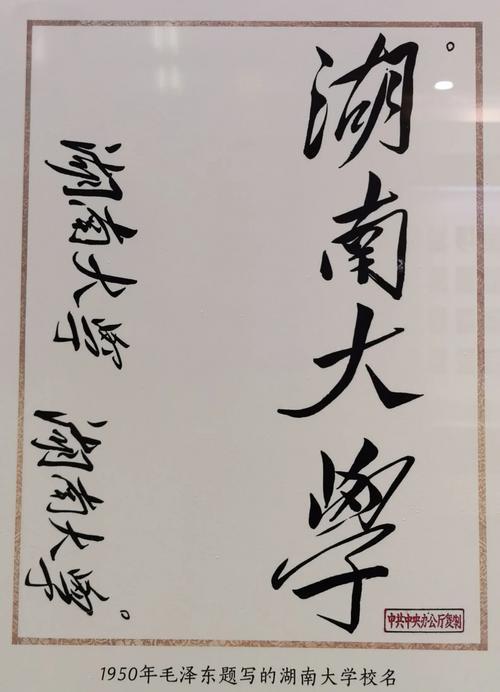 湖南大學
湖南大学
湖南大学。
中共中央办公厅复制
1950年毛泽东题写的湖南大学校名